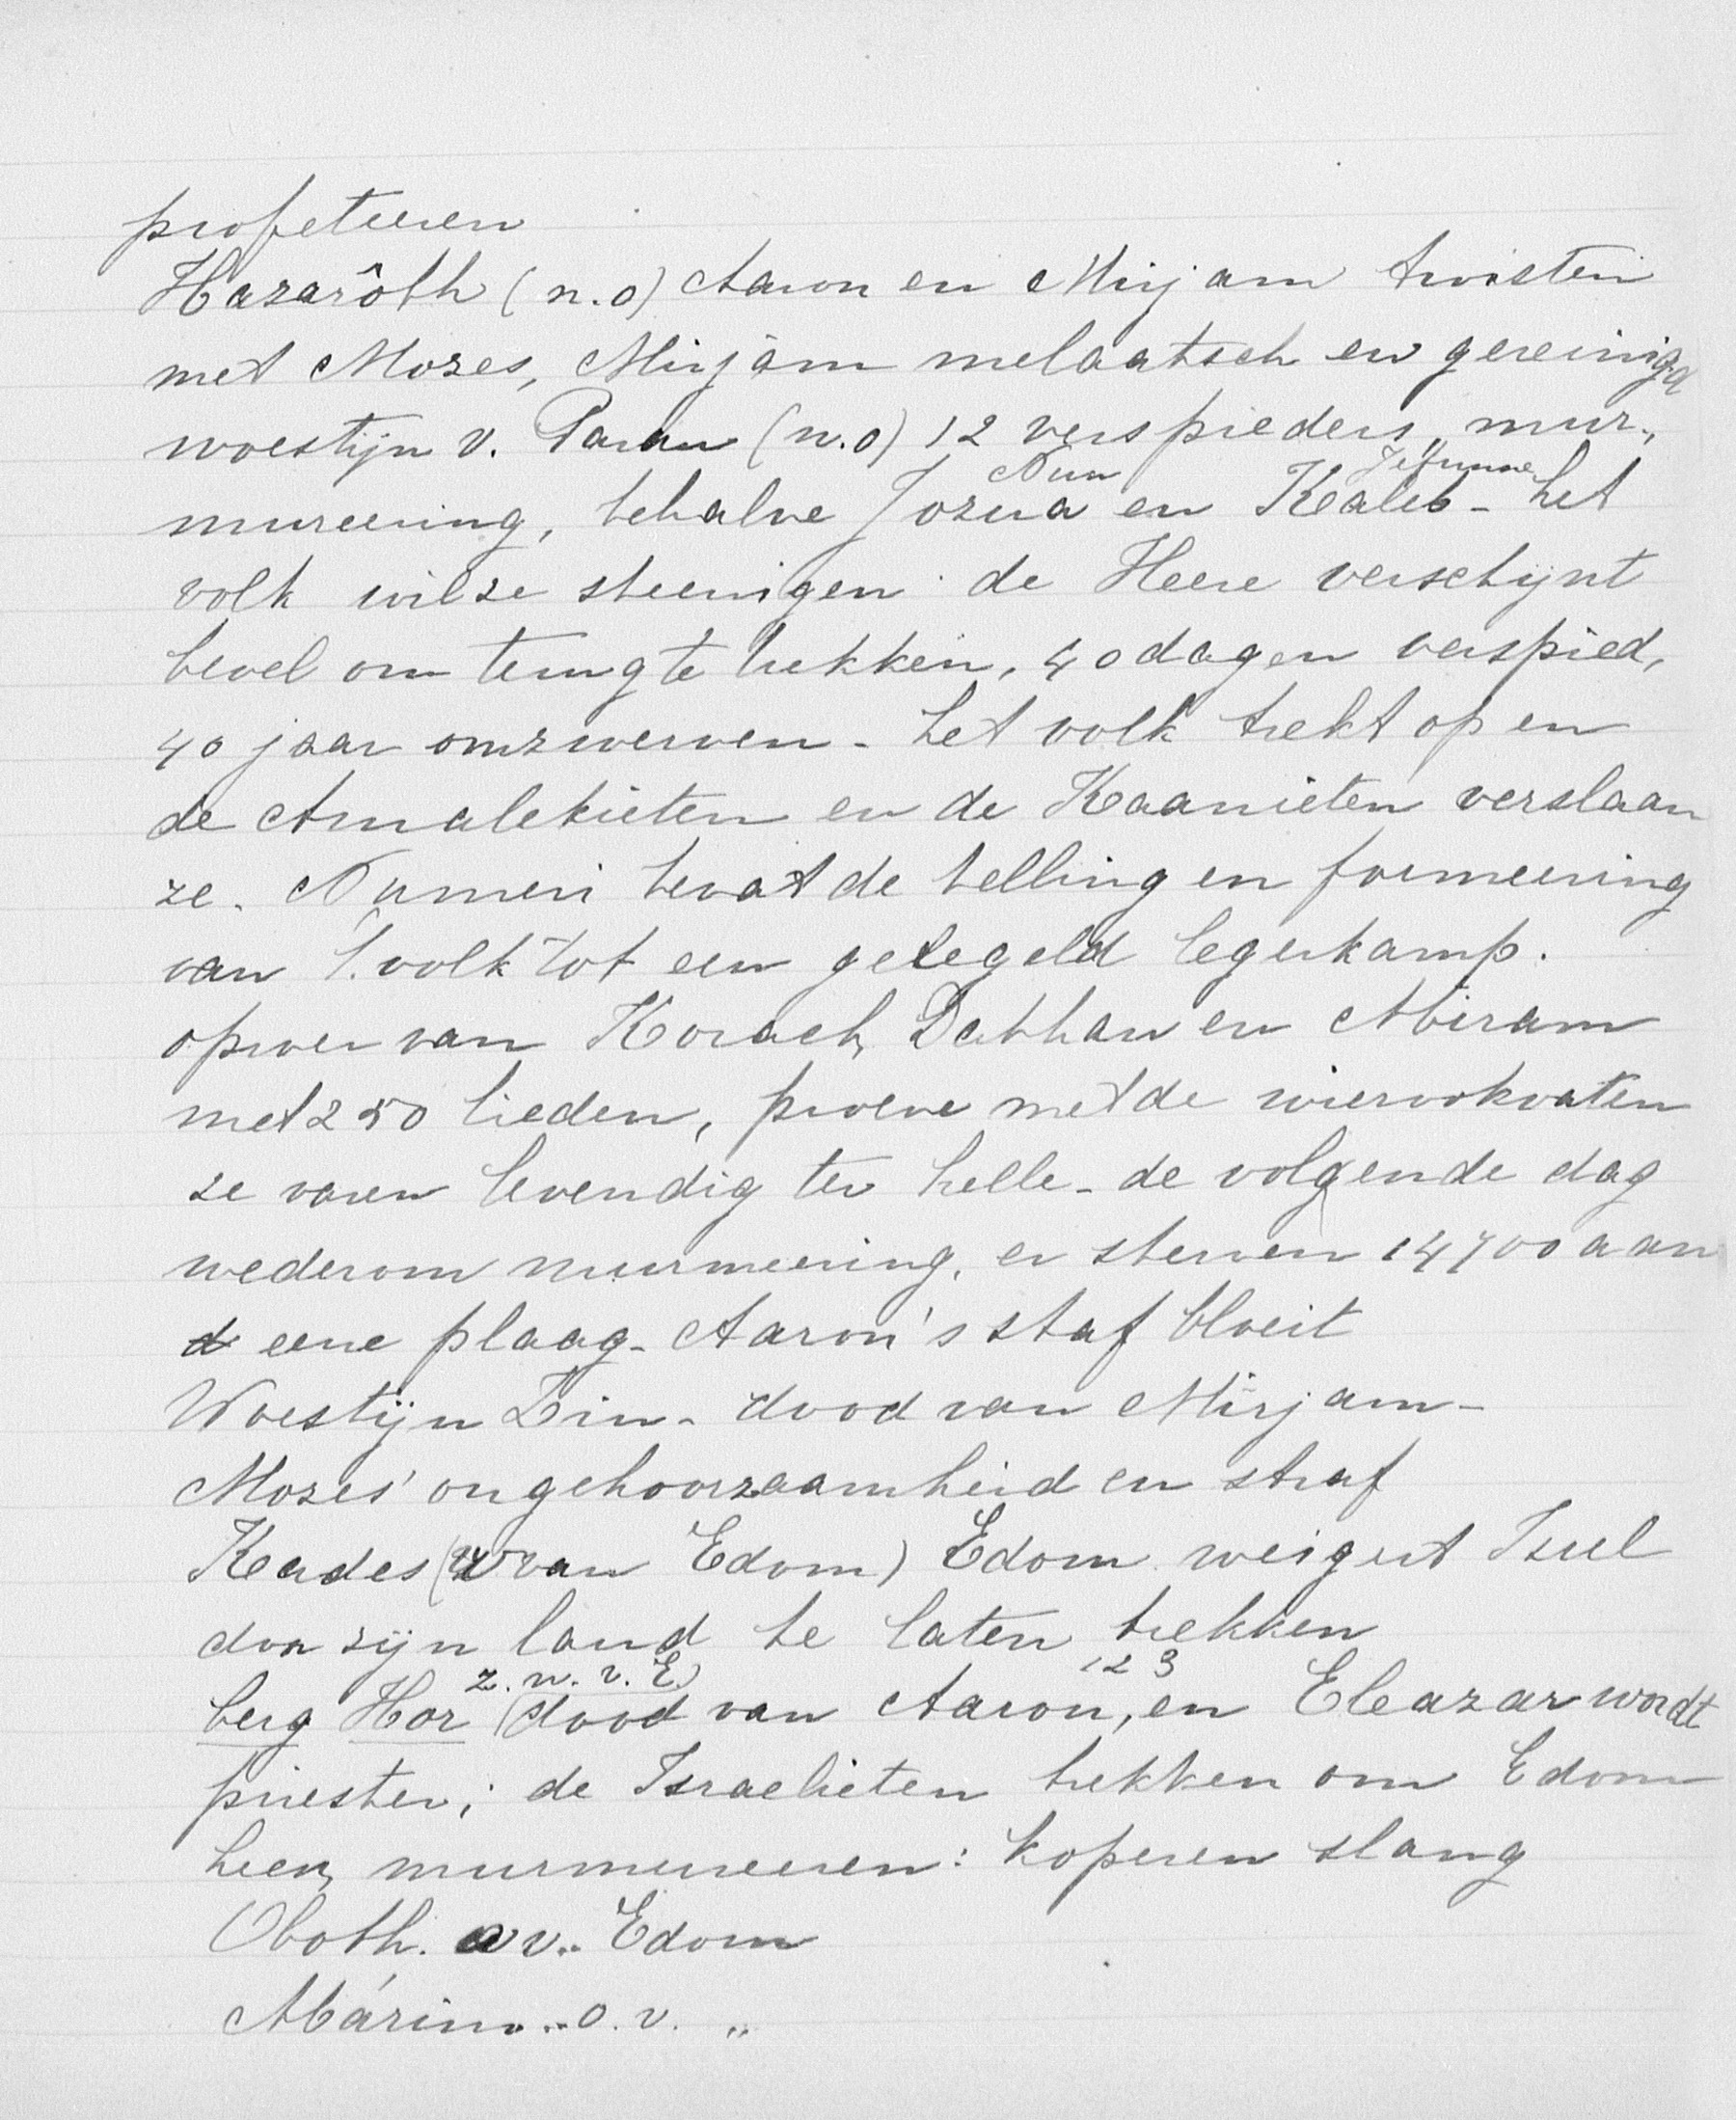 profeteeren
Hazarôth (n.o) Aaron en Mirjam twisten
met Mozes, Mirjam melaatsch en gereinigd
woestijn v. Paran (n.o) 12 verspieders, mur-
Nun Jefunne
mureering, behalve Jozua en Kaleb - het
volk wil ze steenigen de Heere verschijnt
bevel om terug te trekken, 40 dagen verspied,
40 jaar omzwerven - het volk trekt op en
de Amalekieten en de Kaanieten verslaan
ze. Numeri bevat de telling en formeering
van 't volk tot een geregeld legerkamp.
oproer van Korach, Dathan en Abiram
met 250 lieden, proeve met de wierookvaten
ze varen levendig ter helle - de volgende dag
wederom murmeering, er sterven 14700 aan
eene plaag - Aaron's staf bloeit
Woestijn Zin - dood van Mirjam -
Mozes' ongehoorzaamheid en straf
Kades (W van Edom) Edom weigert Israel
door zijn land te laten trekken
z. w. v. E) 123
berg Hor (dood van Aaron, en Eleazar wordt
priester; de Israelieten trekken om Edom
heen, murmureeren: koperen slang
Oboth. o v. Edom
Abárim .. o. v. "